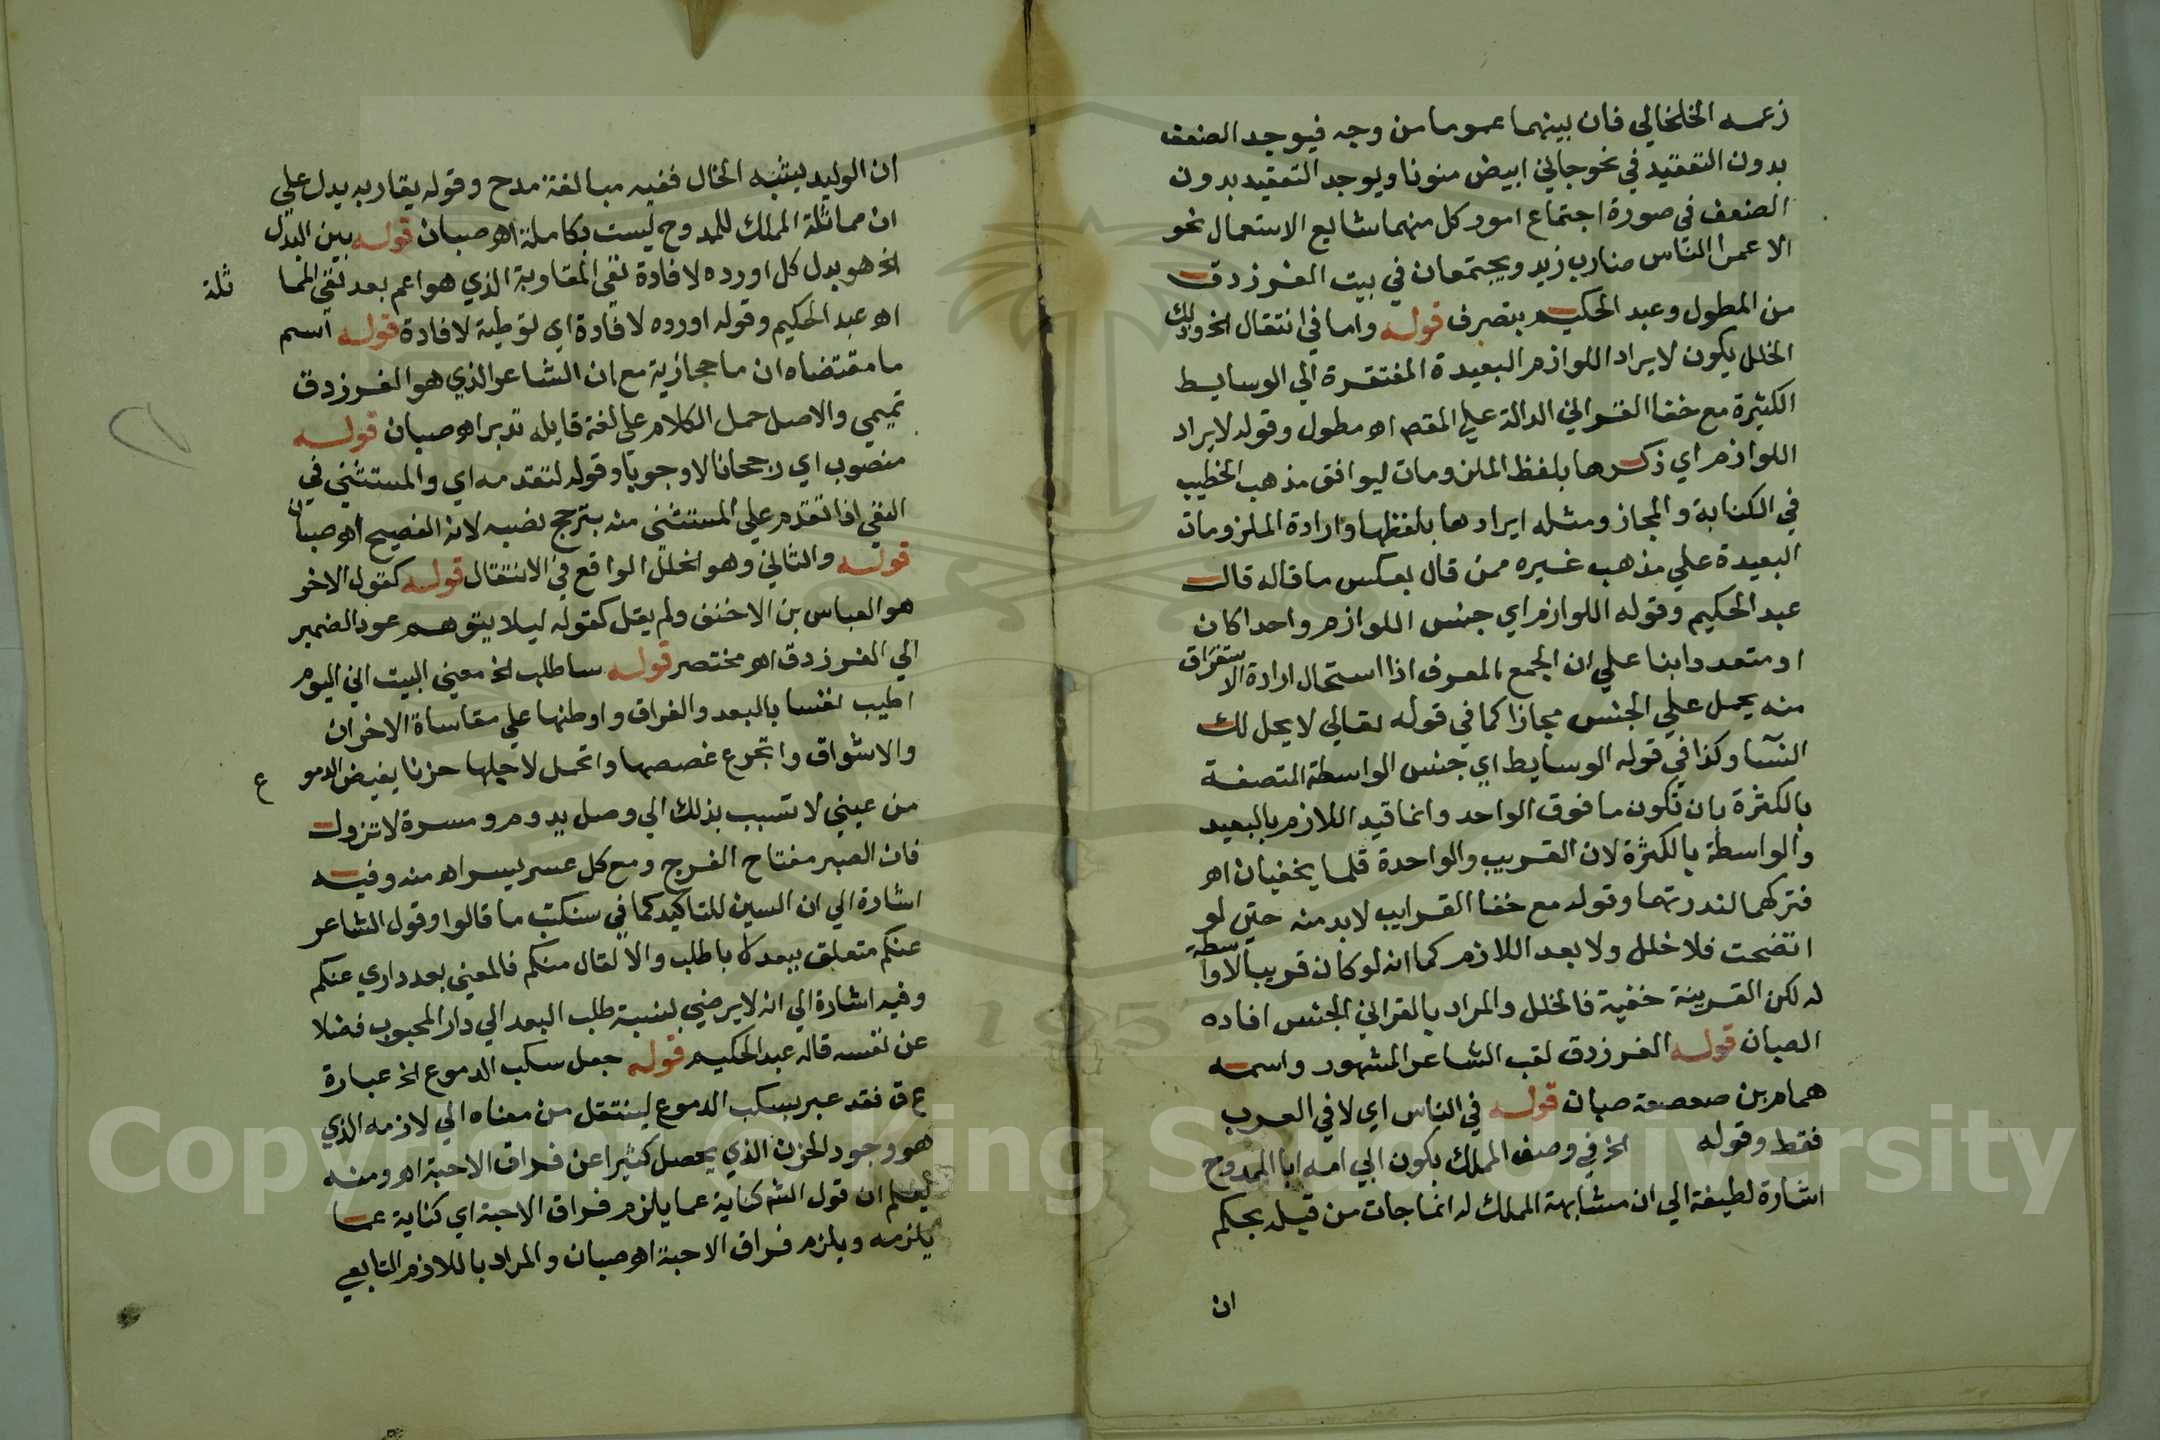 زعمه الخلخالي فان بينهما عموما من وجه فيوجد الضعف
بدون التعقيد في نحو جاني ابيض منونا ويوجد التعقيد بدون
الضعف في صورة اجتماع امور كل منهما شايع الاستعمال نحو
الا عمرا الناس ضارب زيد ويجتمعان في بيت الفرزدق
من المطول وعبد الحكيم بتصرف قوله واما في انتقال الخ وذلك
الخلل يكون لايراد اللوازم البعيدة المفتقرة الي الوسايط
الكثيرة مع خفا القراين الدالة علي المقصد اه مطول وقوله لايراد
اللوازم اي ذكرها بلفظ الملزومات ليوافق مذهب الخطيب
في الكناية والمجاز ومثله ايرادها بلفظها وارادة الملزومات
البعيدة علي مذهب غيره ممن قال بعكس ما قاله قال
عبد الحكيم وقوله اللوازم اي جنس اللوازم واحدا كان
او متعددا بنا علي ان الجمع المعرف اذا استحال ارادة الاستغراق
منه يحمل علي الجنس مجازا كما في قوله تعالي لا يحل لك
النسآ وكذا في قوله الوسايط اي جنس الواسطة المتصفة
بالكثرة بان تكون ما فوق الواحد وانما قيد اللازم بالبعيد
والواسطة بالكثرة لان القريب والواحدة قلما يخفيان اه
فتركهما لندرتهما وقوله مع خفا القراين لا بد منه حتي لو
اتضحت فلا خلل ولا بعد اللازم كما انه لو كان قريبا لا واسطة
له لكن القرينة خفية فالخلل والمراد بالقراين الجنس افاده
الصبان قوله الفرزدق لقب الشاعر المشهور واسمه
همام بن صعصعة صبان قوله في الناس اي لا في العرب
فقط وقوله الخ في وصف المملك بكون ابي امه ابا الممدوح
اشارة لطيفة الي ان مشابهة المملك له انما جات من قبله بحكم
ان
ان الوليد يشبه الخال ففيه مبالغة مدح وقوله يقاربه يدل علي
ان مماثلة المملك للمدوح ليست بكاملة اه صبان قوله بين البدل
الخ هو بدل كل اورده لافادة نفي المقاربة الذي هو اعم بعد نفي المما ثلة
اه عبد الحكيم وقوله اورده لافادة اي توطية لافادة قوله اسم
ما مقتضاه ان ما حجازية مع ان الشاعر الذي هو الفرزدق
تميمي والاصل حمل الكلام علي لغة قايله تدبر اه صبان قوله
منصوب اي رجحانا لا وجوبا وقوله لتقدمه اي والمستثني في
النفي اذا تقدم علي المستثني منه يترجح نصبه لانه الفصيح اه صبان
قوله والثاني وهو الخلل الواقع في الانتقال قوله كقول الاخر
هو العباس بن الاخنف ولم يقل كقوله ليلا يتوهم عود الضمير
الي الفرزدق اه مختصر قوله ساطلب الخ معني البيت اني اليوم
اطيب نفسا بالبعد والفراق واوطنها علي مقاساة الاخزان
والاشواق واتجرع غصصها واتحمل لاجلها حزنا يفيض الدمو ع
من عيني لاتسبب بذلك الي وصل يدوم ومسرة لا تزول
فان الصبر مفتاح الفرج ومع كل عسر يسرا اه منه وفيه
اشارة الي ان السين للتاكيد كما في سنكتب ما قالوا وقول الشاعر
عنكم متعلق ببعد لا باطلب والا لقال منكم فالمعني بعد داري عنكم
وفيه اشارة الي انه لا يرضي بنسبة طلب البعد الي دار المحبوب فضلا
عن نفسه قاله عبد الحكيم قوله جعل سكب الدموع الخ عبارة
ع ق فقد عبر بسكب الدموع لينتقل من معناه الي لازمه الذي
هو وجود الحزن الذي يحصل كثيرا عن فراق الاحبة اه ومنه
يعلم ان قول الشم كناية عما يلزم فراق الاحبة اي كناية عما
يلزمه ويلزم فراق الاحبة اه صبان والمراد باللازم التابعي
Copyright © King Saud University
1957